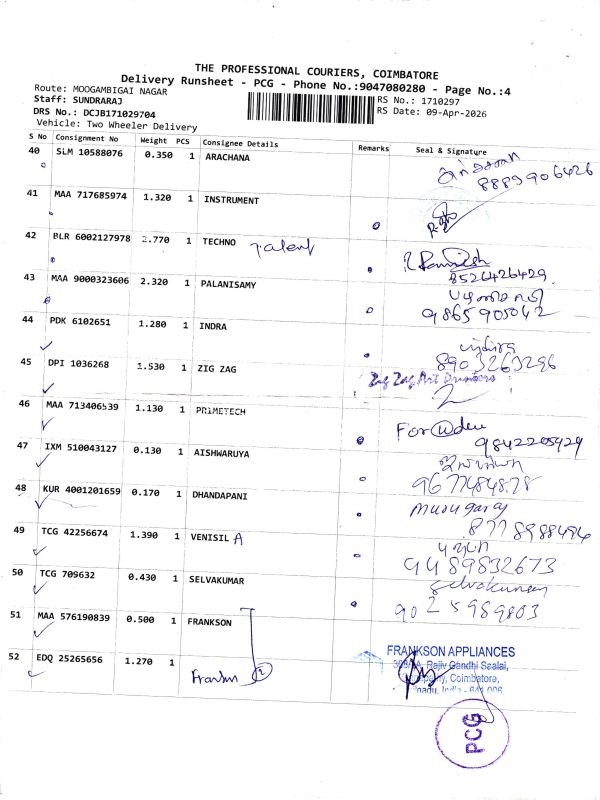 THE PROFESSIONAL COURIERS, COIMBATORE
Delivery Runsheet - PCG - Phone No.:9047080280 - Page No.:4
Route: MOOGAMBIGAI NAGAR
Staff: SUNDRARAJ
RS No.: 1710297
DRS No.: DCJB171029704
RS Date: 09-Apr-2026
Vehicle: Two Wheeler Delivery
S No Consignment No Weight PCS Consignee Details Remarks Seal & Signature
40 SLM 10588076 0.350 1 ARACHANA
8889906426
41 MAA 717685974 1.320 1 INSTRUMENT
42 BLR 6002127978 2.770 1 TECHNO Talent
8526426429
43 MAA 9000323606 2.320 1 PALANISAMY
பழனிசாமி
9865905042
44 PDK 6102651 1.280 1 INDRA
8903263296
45 DPI 1036268 1.530 1 ZIG ZAG
Zig Zag Art Printers
46 MAA 713406539 1.130 1 PRIMETECH
9842205929
47 IXM 510043127 0.130 1 AISHWARUYA
48 KUR 4001201659 0.170 1 DHANDAPANI
Murugaraj
8778988494
49 TCG 42256674 1.390 1 VENISIL A
9489832673
50 TCG 709632 0.430 1 SELVAKUMAR
Selvakumar
9025989803
51 MAA 576190839 0.500 1 FRANKSON
52 EDQ 25265656 1.270 1
Frankson 2
FRANKSON APPLIANCES
Rajiv Gandhi Saalai,
Coimbatore,
India - 641 006
PCG